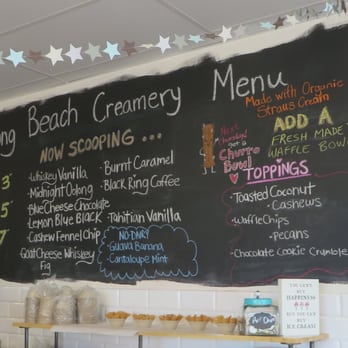 ng Beach Creamery Menu
NOW SCOOPING ...
Whiskey Vanilla
Midnight Oolong
Blue Cheese Chocolate
Lemon Blue Black
Cashew Fennel Chip
Goat Cheese Whiskey
Fig
Burnt Caramel
Black Ring Coffee
Tahitian Vanilla
NO-DAIRY
Guava Banana
Cantaloupe Mint
3
5
7
Made with Organic
Straus Cream
Churro
Bowl
ADD A
FRESH MADE
WAFFLE BOWL
TOPPINGS
Toasted Coconut
Cashews
Waffle Chips
Pecans
Chocolate Cookie Crumble
HAPPINESS
BUT YOU CAN BUY
ICE CREAM